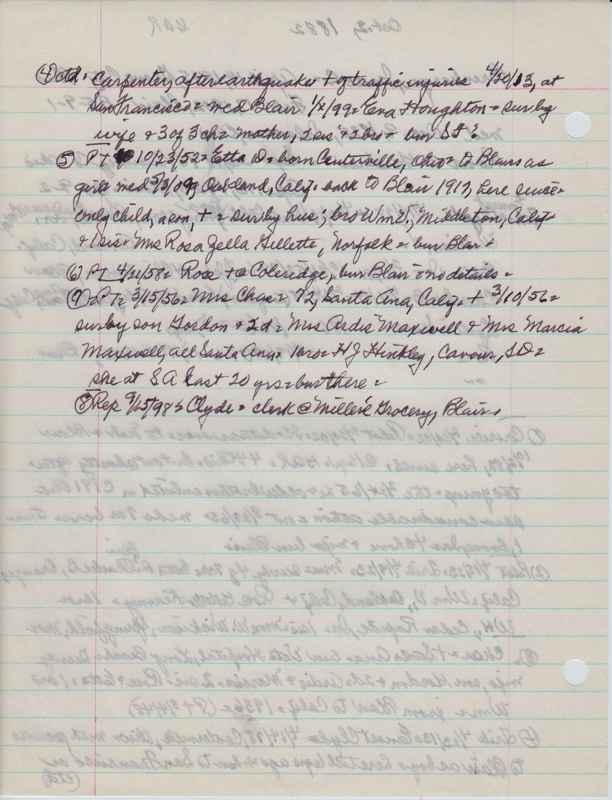 ④ctd. Carpenter, after earthquake + of traffic injuries 4/20/13, at
San Francisco = med Blair 1/1/99 = Eva Houghton = surv by
wife + 3 of 3 ch = mother, 2 sis + 2 bros =
⑤ PT 10/23/52 = Etta D = born Centerville, Ohio = to Blair as
girl = med 5/3/09, Oakland, Calif = back to Blair 1917, here since =
only child, a son, + = surv by hus; bro Wm V., Middleton, Calif =
+ 1 sis = Mrs Rosa Zella Gillette, Norfolk = bur Blair =
⑥ PT 4/21/58 = Rose + @ Coleridge, bur Blair = no details =
⑦ PT = 3/15/56 = Mrs Chas = 72, Santa Ana, Calif = + 3/10/56 =
surv by son Gordon + 2 d = Mrs Ardis Maxwell + Mrs Marcia
Maxwell, all Santa Ana = 1 bro = H J Hinkley, Cavour, SD =
she at SA last 20 yrs = bur there =
⑧ Rep 9/15/98 > Clyde = clerk @ Miller's Grocery, Blair =